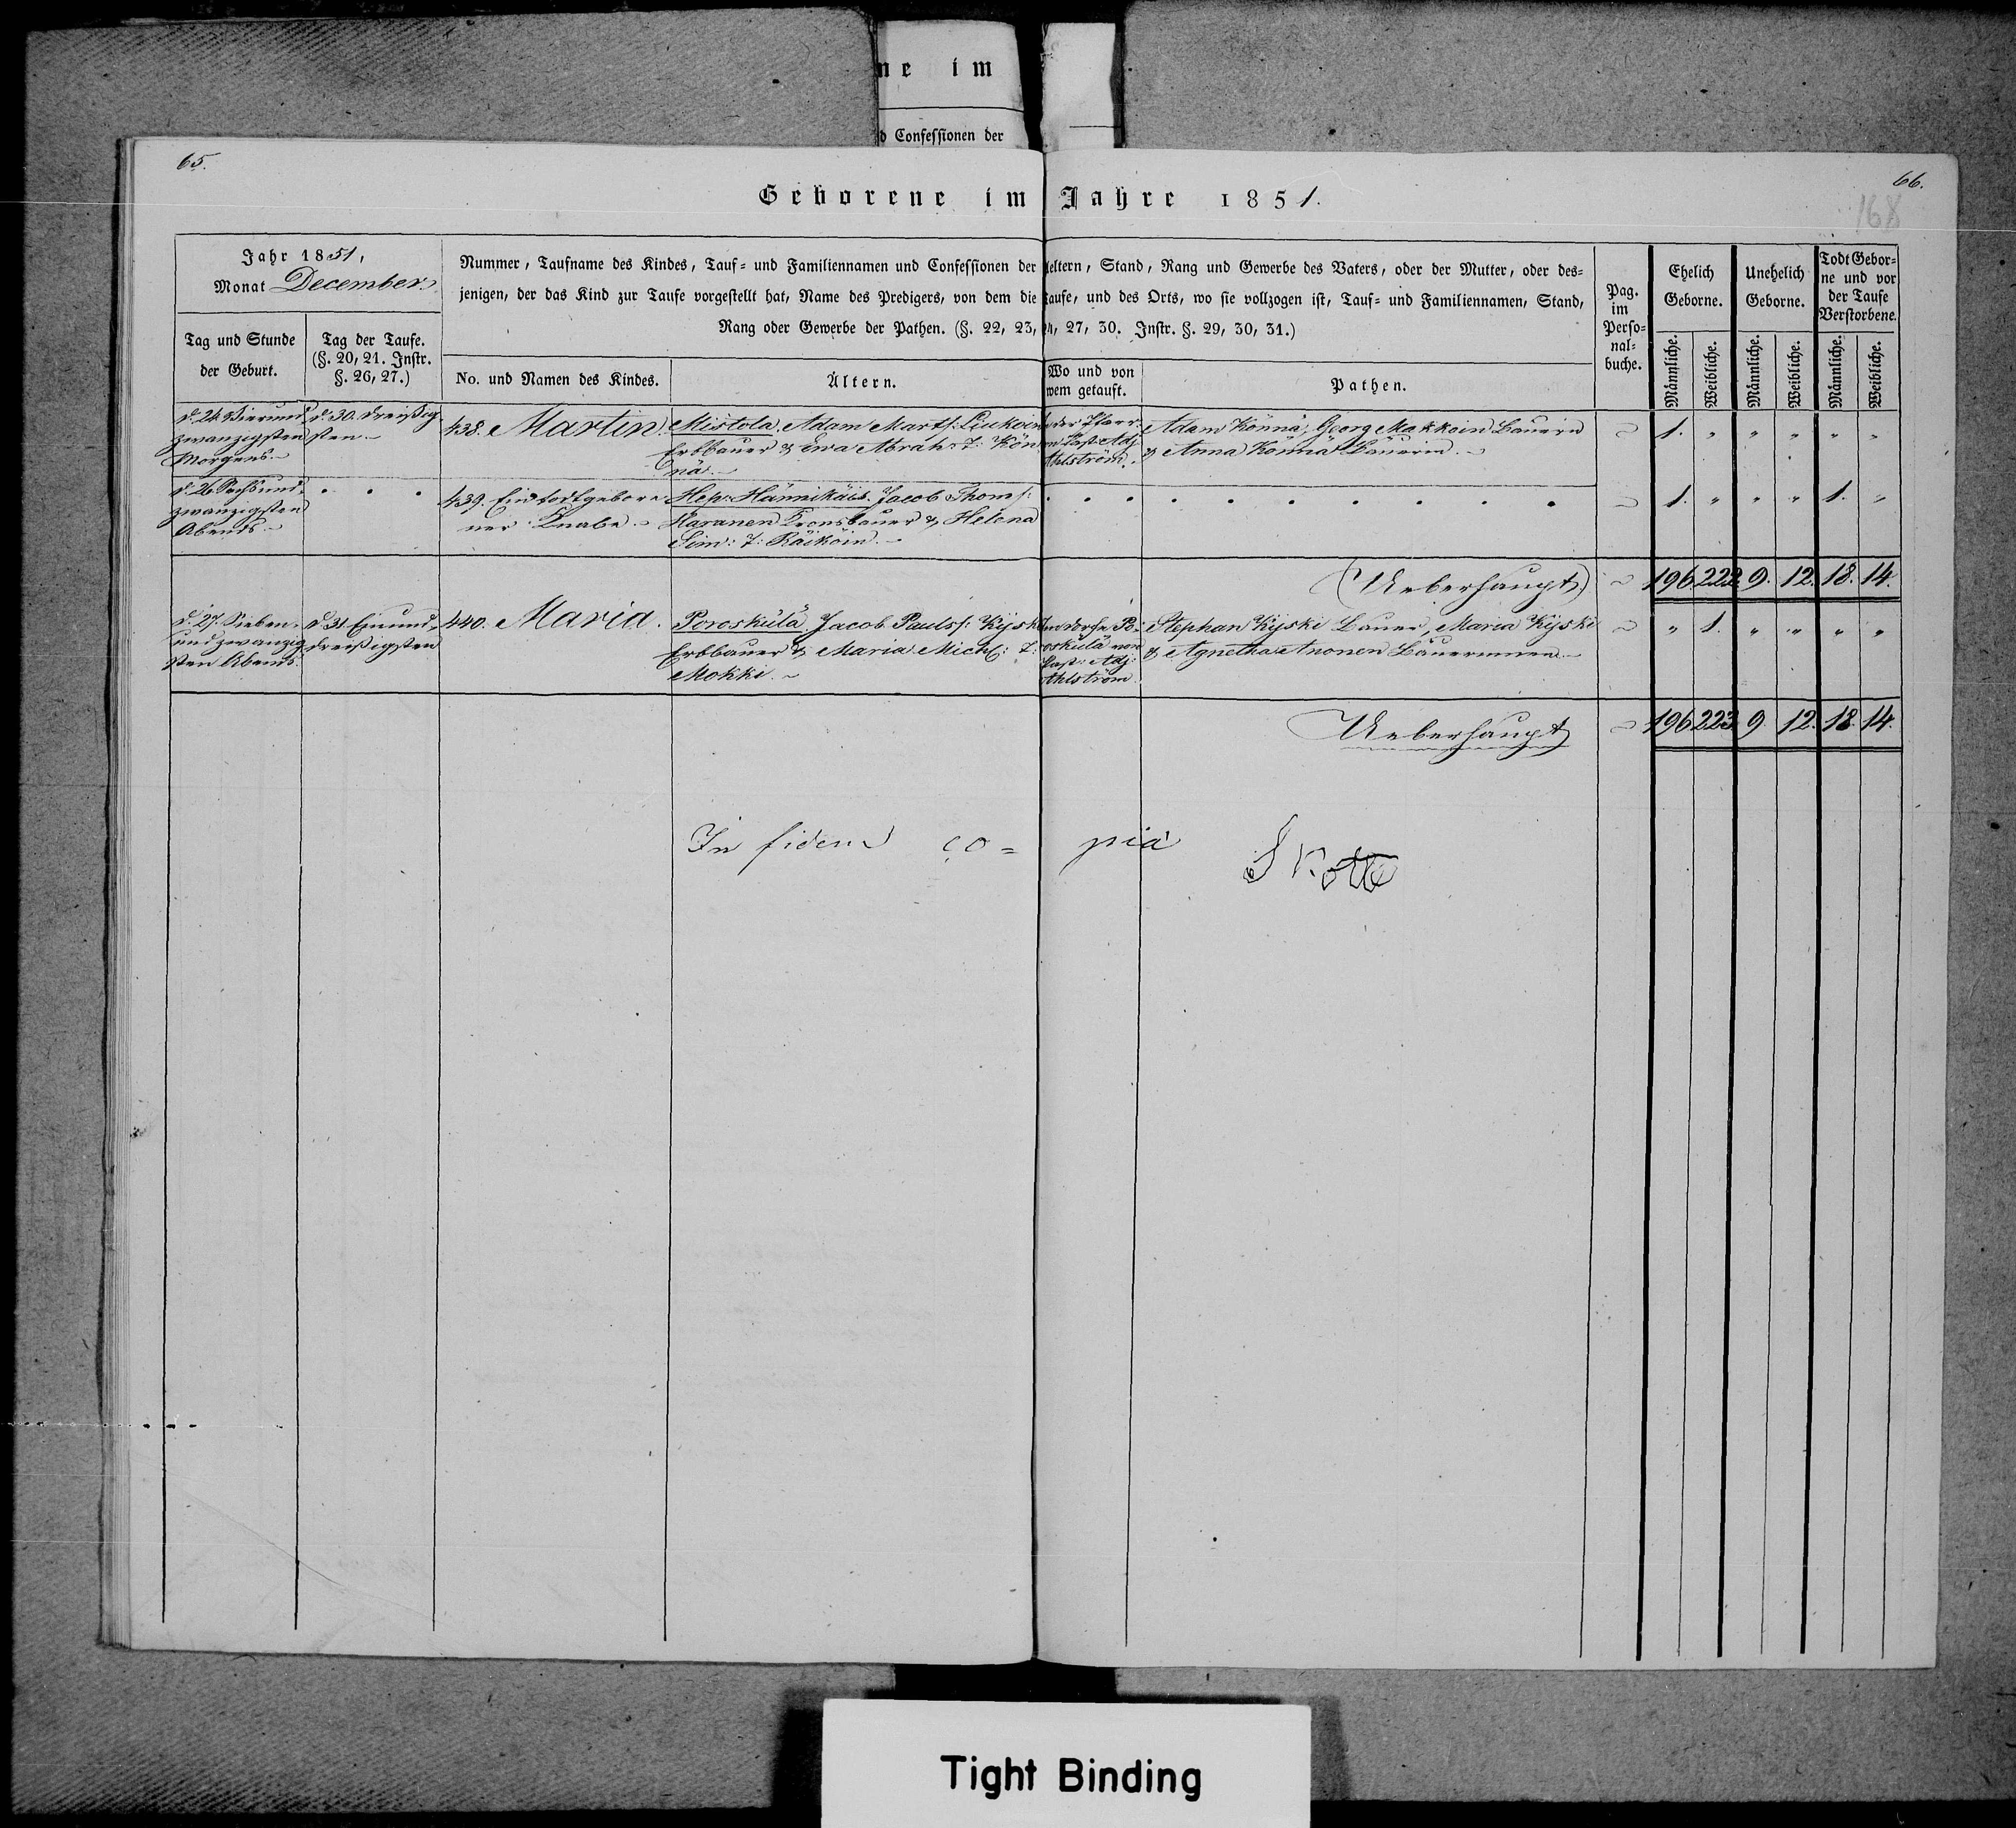 ne im
d Confessionen der
65.
66.
168
Geborene im Jahre 1851.
Jahr 1851,
Monat December.
Tag und Stunde
der Geburt.
Tag der Taufe.
(§. 20, 21. Instr.
§. 26, 27.)
Nummer, Taufname des Kindes, Tauf= und Familiennamen und Confessionen der Aeltern, Stand, Rang und Gewerbe des Vaters, oder der Mutter, oder des=
jenigen, der das Kind zur Taufe vorgestellt hat, Name des Predigers, von dem die Taufe, und des Orts, wo sie vollzogen ist, Tauf= und Familiennamen, Stand,
Rang oder Gewerbe der Pathen. (§. 22, 23, 24, 27, 30. Instr. §. 29, 30, 31.)
No. und Namen des Kindes.
Ältern.
Wo und von
wem getauft.
Pathen.
Pag.
im
Perso=
nal=
buche.
Ehelich
Geborne.
Unehelich
Geborne.
Todt Gebor=
ne und vor
der Taufe
Verstorbene.
Männliche.
Weibliche.
Männliche.
Weibliche.
Männliche.
Weibliche.
d. 24. Vierund
zwanzigsten
Morgens.
d. 30. dreißig
sten
438. Martin.
Mistola. Adam Marts: Liukoin
Erbbauer & Ewa Abrah: T: Kön
nä.
der Pfarr
Past: Adj:
Ahlström.
Adam Könnä, Georg Makkoin Bauern
& Anna Könnä Bäuerin.
1. " " " " "
d. 26. Sechsund
zwanzigsten
Abends.
439. Ein todtgebore
ner Knabe.
Hep: Hännikäis. Jacob Thoms:
Karanen Kronsbauer & Helena
Sim: T: Räiköin.
1. " " " 1. "
(Ueberhaupt)
196. 222. 9. 12. 18. 14.
d. 27. Sieben
undzwanzig
sten Abends.
d. 31. Einund
dreißigsten
440. Maria.
Poroskülä Jacob Pauls: Kyski
Erbbauer & Maria Mich: T:
Mokki.
Im Dorfe Po
roskülä von
Past: Adj:
Ahlström.
Stephan Kyski Bauer, Maria Kyski
& Agnetha Anonen Bäuerinnen.
" 1. " " " "
Ueberhaupt
196 223 9. 12. 18. 14.
In fidem co= pia
Skotte
Tight Binding